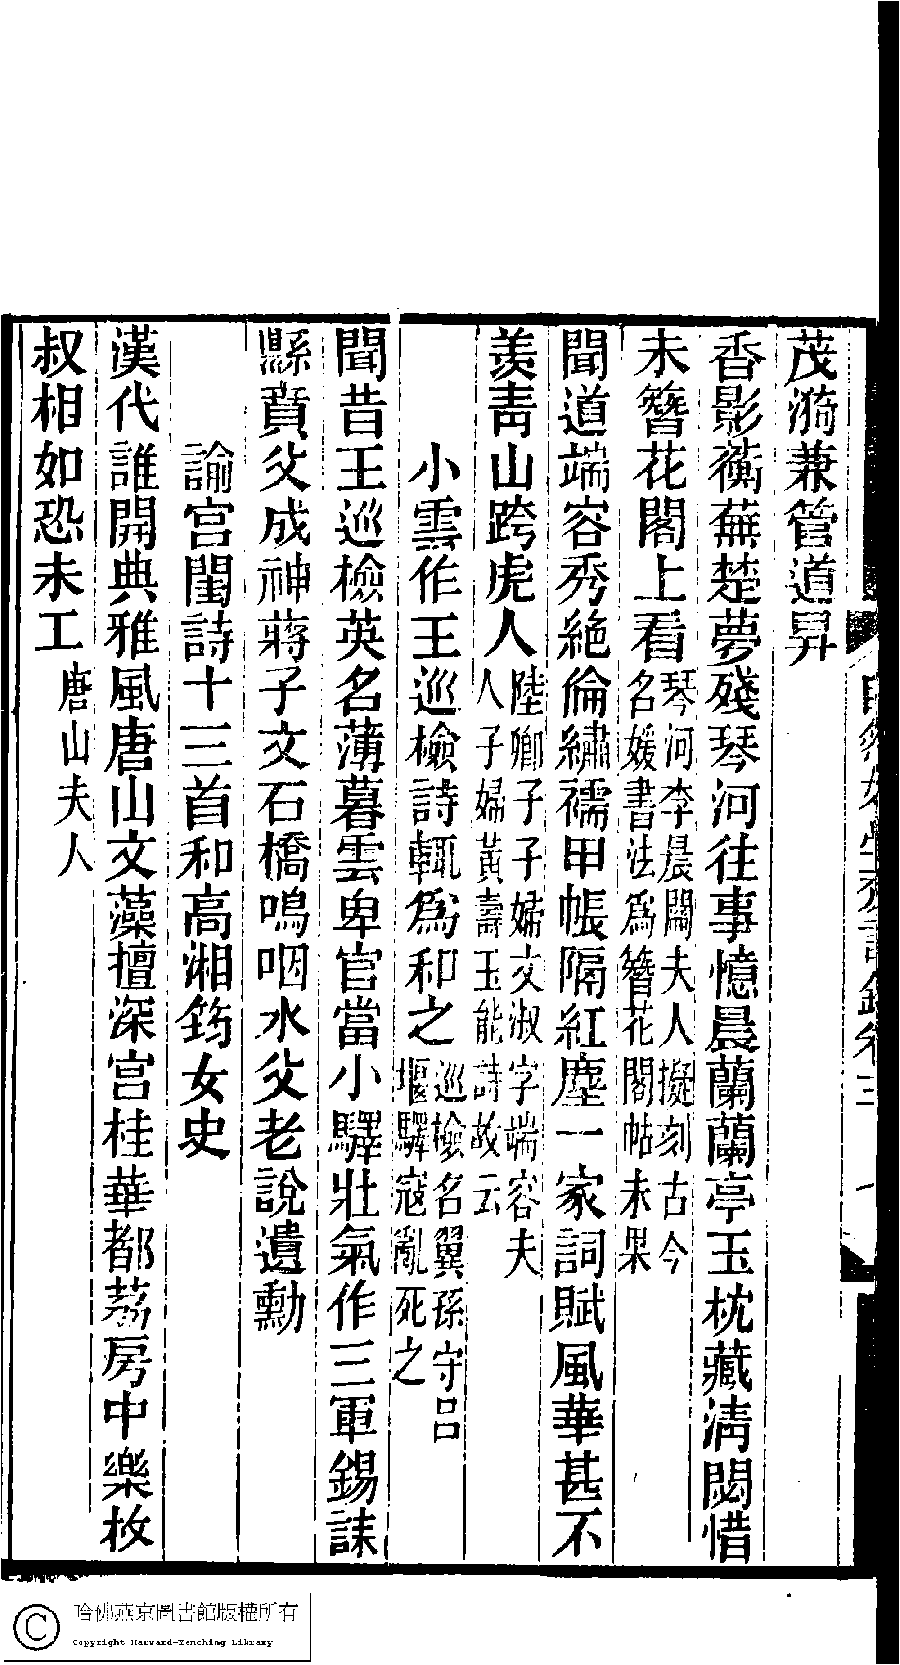 茂漪兼管道昇
香影蘅蕪楚夢殘琴河往事憶晨蘭蘭亭玉枕藏淸閟惜
未簪花閣上看琴河李晨蘭夫人擬刻古今名媛書法爲簪花閣帖未果
聞道端容秀絶倫繡襦甲帳隔紅塵一家詞賦風華甚不
羨靑山跨虎人陸卿子子婦文淑字端容夫人子婦黃壽玉能詩故云
小雲作王巡檢詩輒爲和之巡檢名翼孫守呂堰驛寇亂死之
聞昔王巡檢英名薄暮雲卑官當小驛壯氣作三軍錫誄
縣賁父成神蔣子文石橋嗚咽水父老說遺勲
諭宮閨詩十三首和高湘筠女史
漢代誰開典雅風唐山文藻擅深宮桂華都荔房中樂枚
叔相如恐未工唐山夫人
哈佛燕京圖書館版權所有
Copyright Harvard-Yenching Library